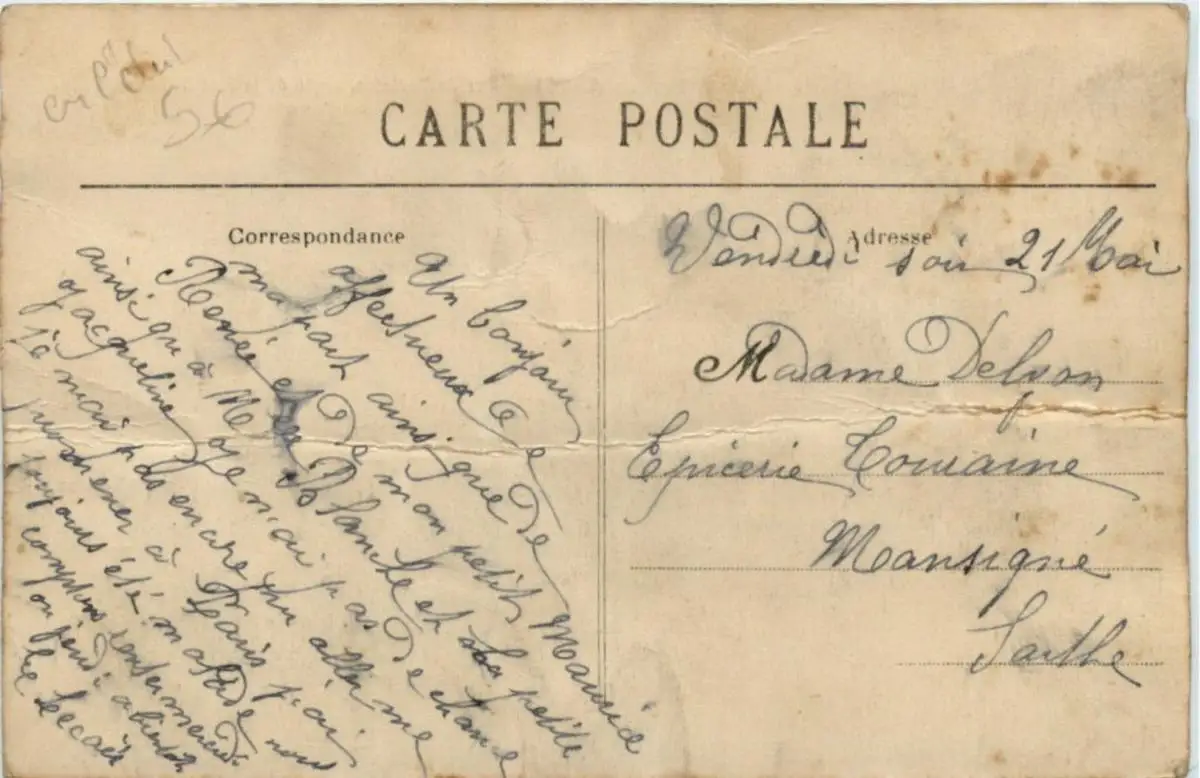 56
CARTE POSTALE
Correspondance
Un bonjour
affectueux de
ma part ainsi que de
Renée et de mon petit Maurice
Blanche et sa petite
ainsi qu'à M je n'ai pas de chance
Jacqueline
je n'ai pas encore pu aller me
promener à Paris j'ai
toujours été malade nous
comptons rentrer mercredi
ou jeudi a bientot
Adresse
Vendredi soir 21 Mai
Madame
Epicerie Touraine
Mansigné
Sarthe